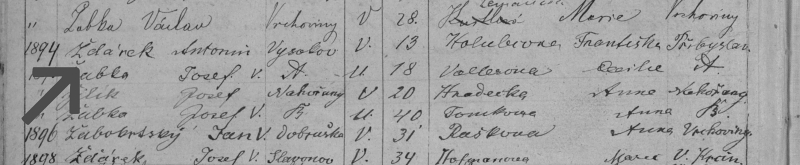 " Žabka Václav Vrchoviny V 28. Marie Vrchoviny
1894 Žďárek Antonín Vysokov V. 13 Holubcova Františka Třebyslav.
Žabka Josef V. A. U. 18 Valterova Cecilie A.
Jilík Josef Nahořany V 20 Hradecká Anna Nahořany
" Žabka Josef V. B. U. 40 Tomkova Anna B.
1896 Zábortský Jan V. Dobruška V. 31 Rašková Anna Vrchoviny
1898 Žďárek Josef V. Slavoňov V. 34 Hofmanova Marie V.